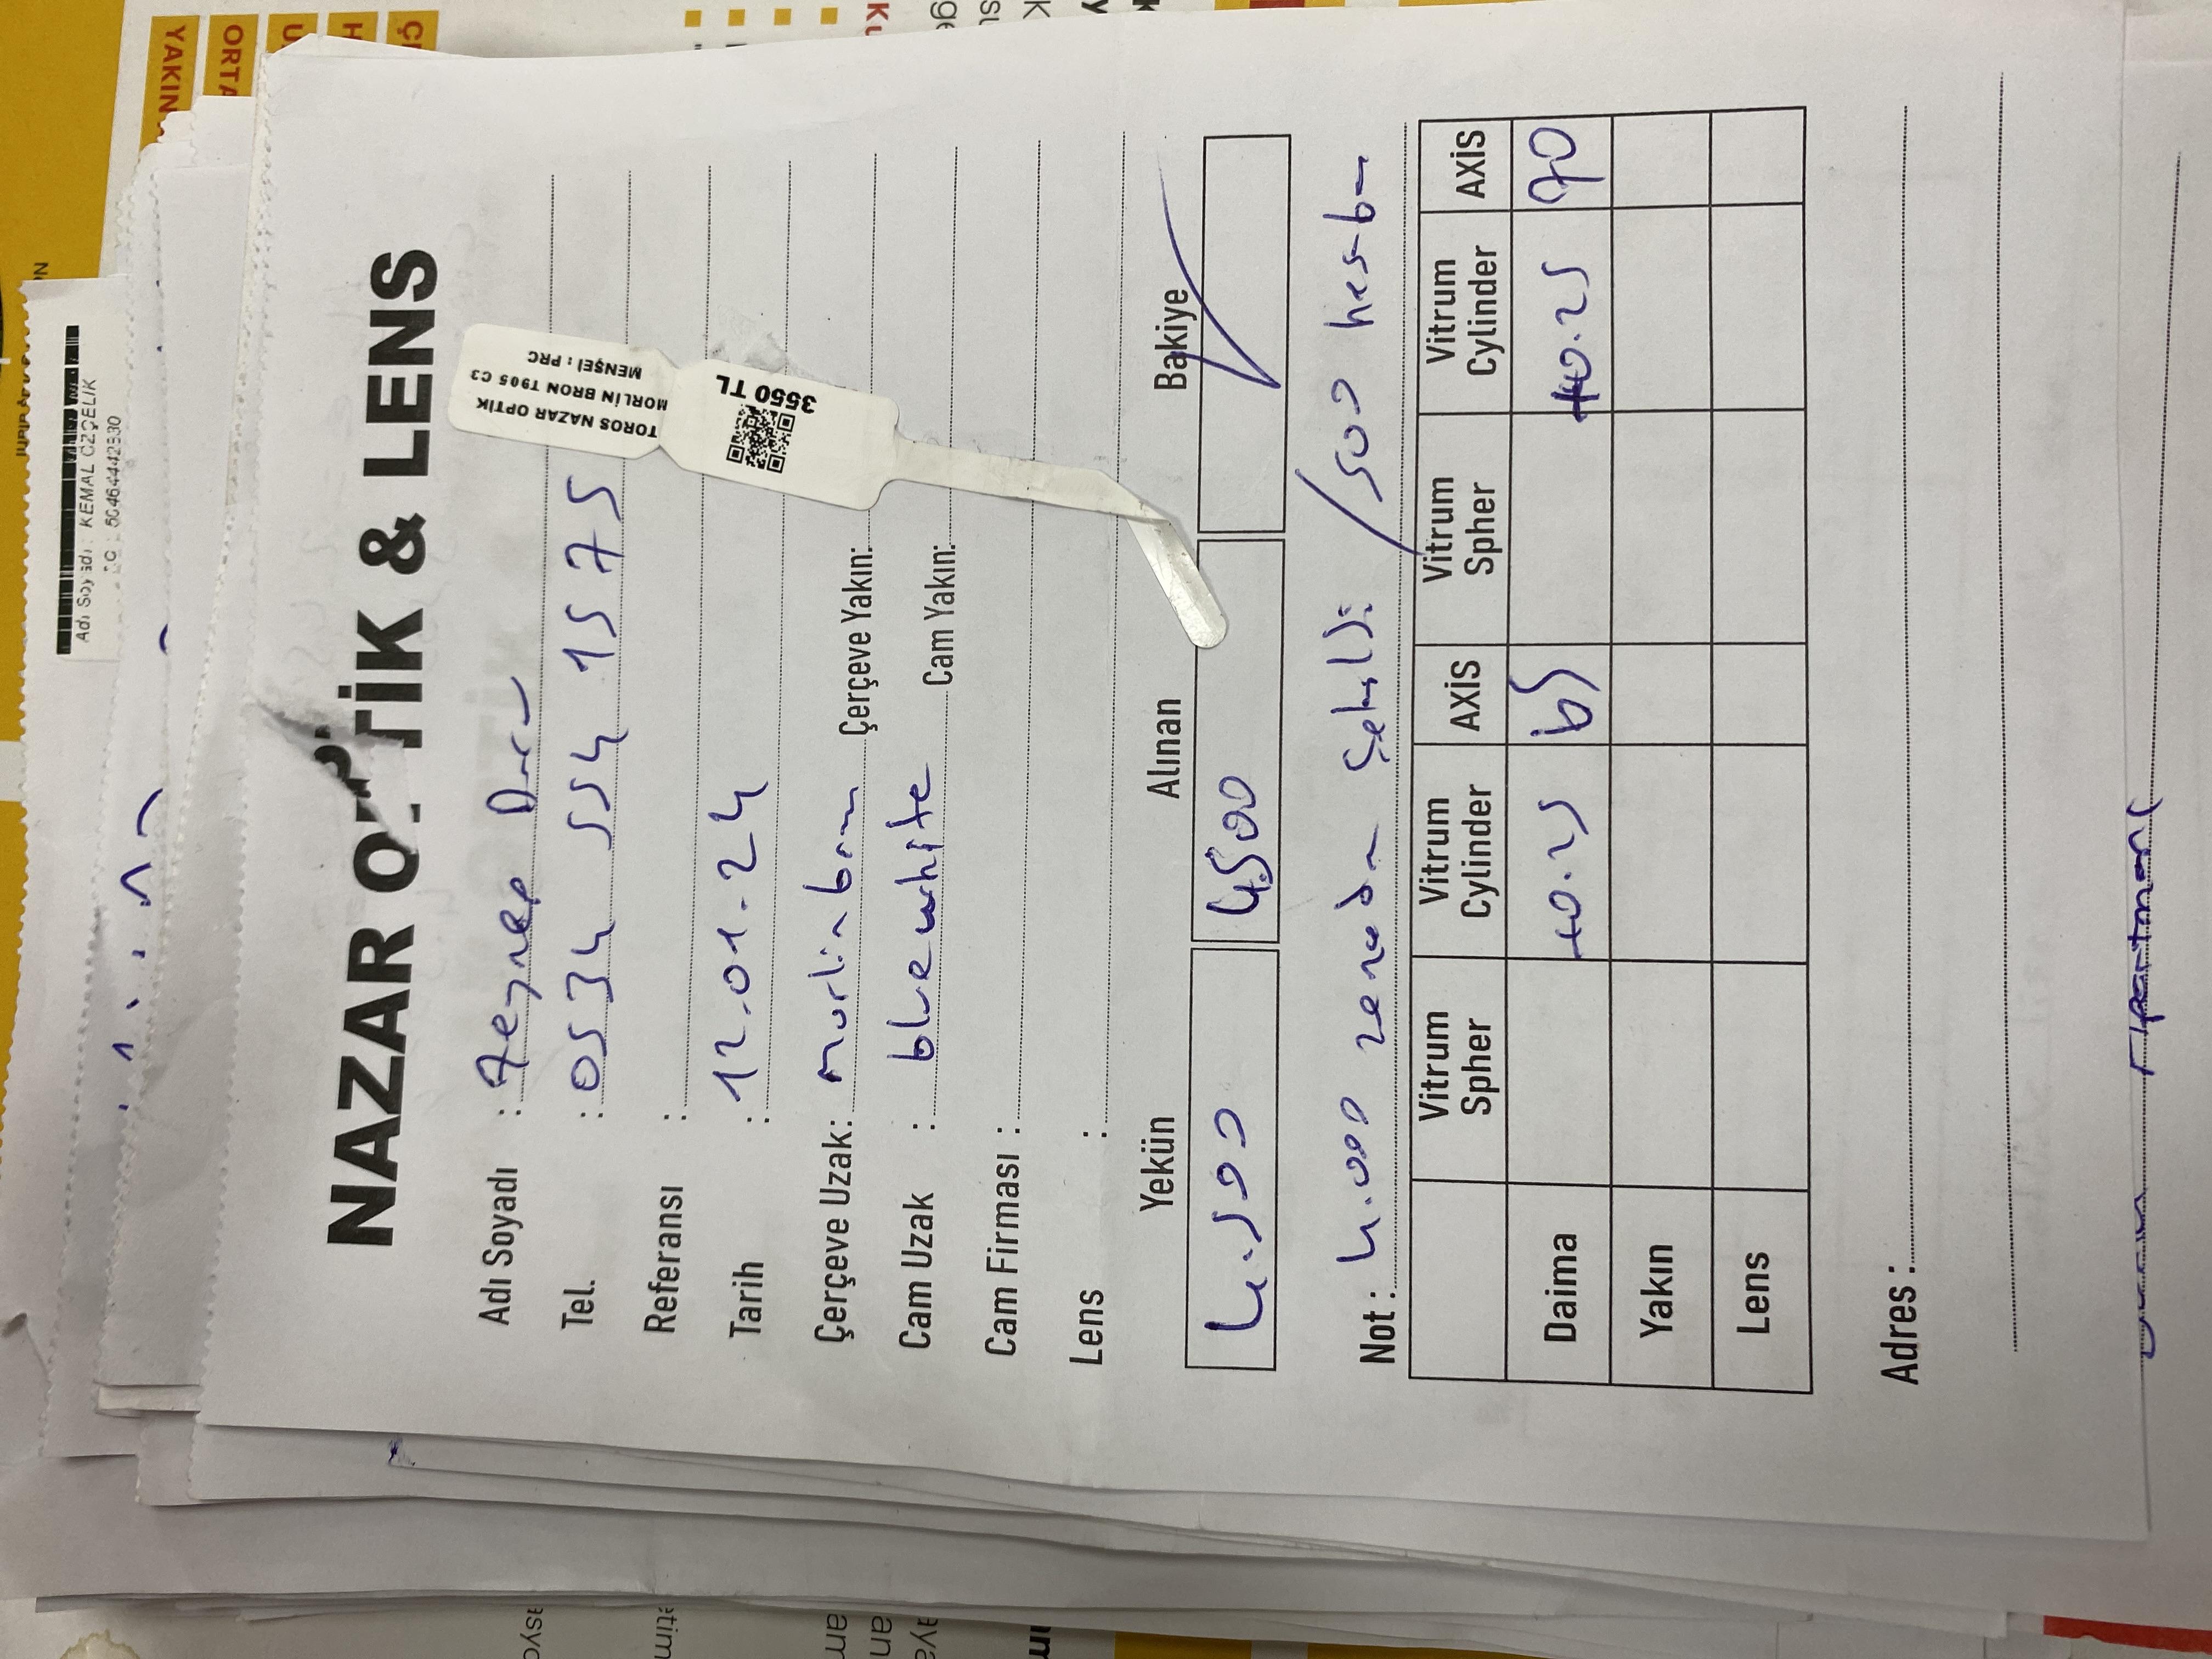 Adı Soyadı : KEMAL ÖZÇELİK
50464442330
YAKIN
ORTA
NAZAR OPTİK & LENS
Adı Soyadı : Zeynep Duru
Tel. : 0534 554 1575
Referansı :
Tarih : 12.01.24
Çerçeve Uzak: Morlin bron Çerçeve Yakın:
Cam Uzak : blue white Cam Yakın:
Cam Firması :
Lens :
TOROS NAZAR OPTİK
MORLİN BRON T905 C3
MENŞEİ : PRC
3550 TL
Yekün Alınan Bakiye
4.500 4.500 ✓
Not : 4.000 çekildi / 500 hesaba
Vitrum Spher Vitrum Cylinder AXİS Vitrum Spher Vitrum Cylinder AXİS
Daima +0.25 65 +0.25 70
Yakın
Lens
Adres :
Apartmanı